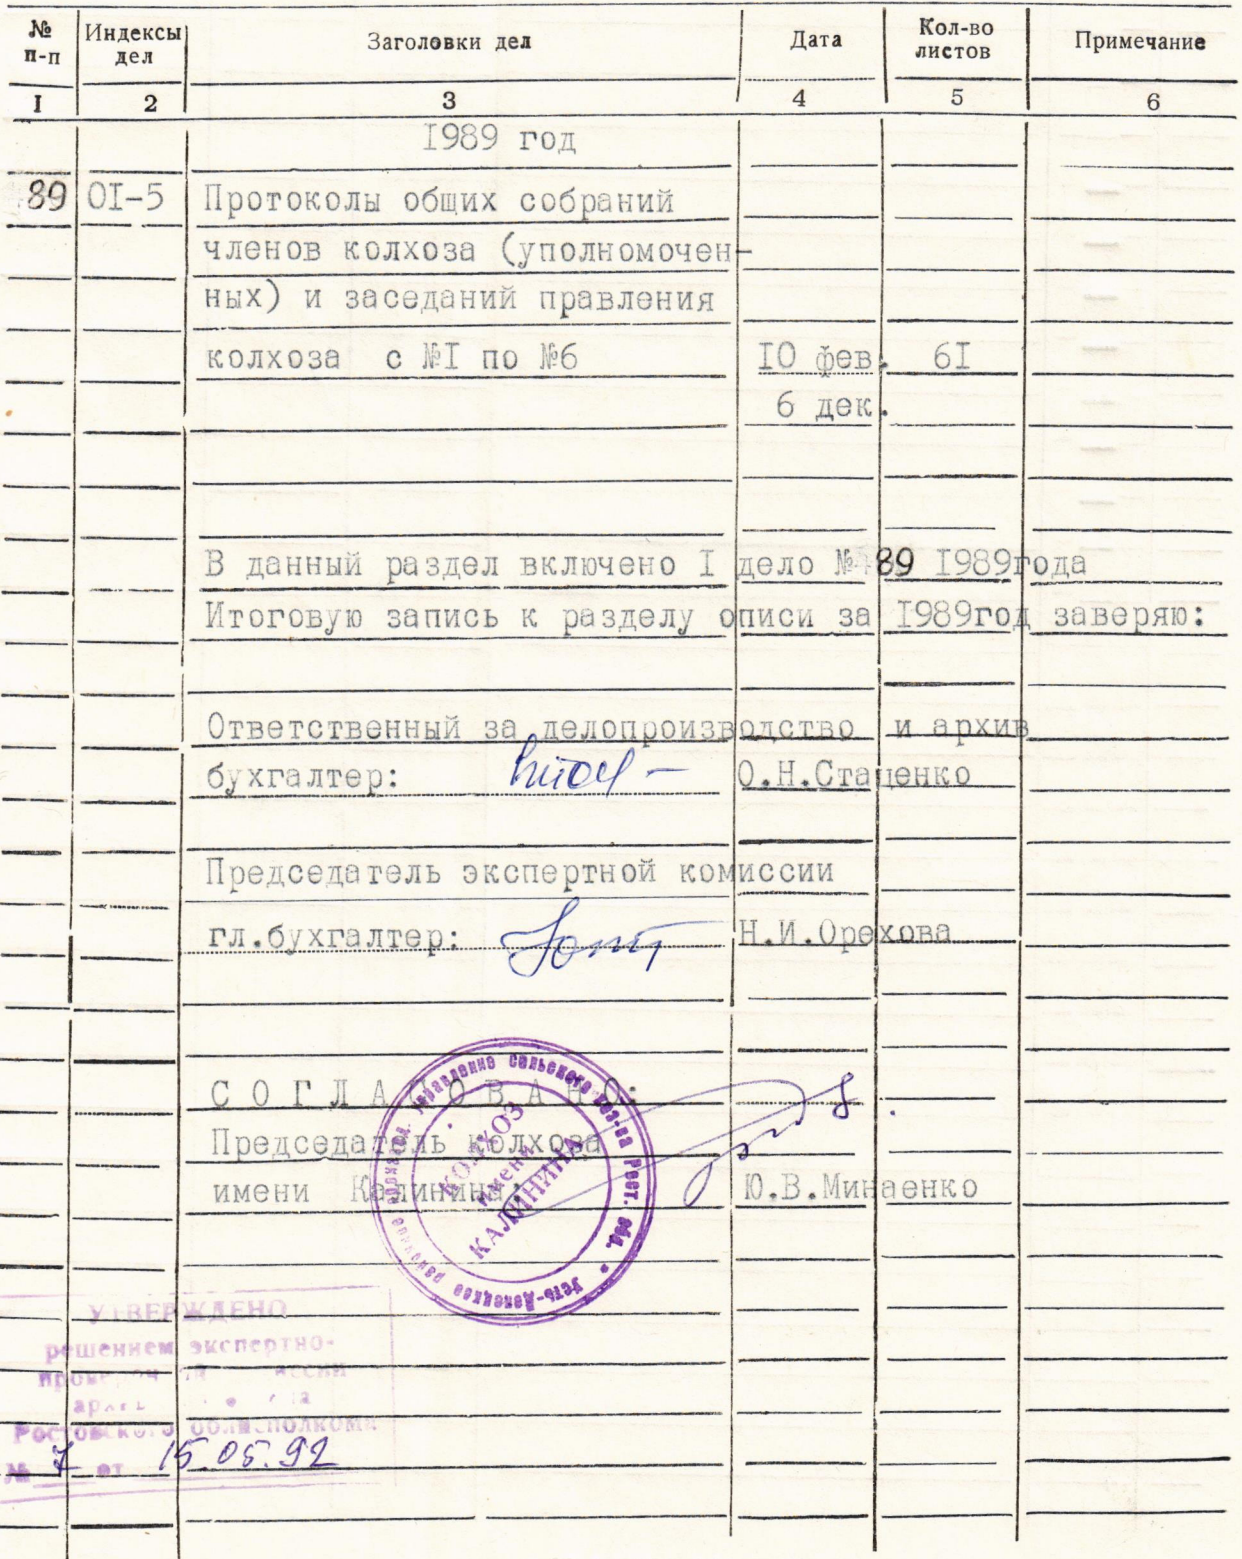 № п-п Индексы дел Заголовки дел Дата Кол-во листов Примечание
I 2 3 4 5 6
1989 год
89 0I-5 Протоколы общих собраний
членов колхоза (уполномочен-
ных) и заседаний правления
колхоза с №I по №6 I0 фев. 6I
6 дек.
В данный раздел включено I дело № 89 I989года
Итоговую запись к разделу описи за I989год заверяю:
Ответственный за делопроизводство и архив
бухгалтер: О.Н.Стаценко
Председатель экспертной комиссии
гл.бухгалтер: Н.И.Орехова
СОГЛАСОВАНО:
Председатель колхоза
имени Калинина: Ю.В.Минаенко
управление сельского хоз-ва Рост. обл. Усть-Донецкое
КОЛХОЗ
имени
КАЛИНИНА
УТВЕРЖДЕНО
решением экспертно-
Ростовского облисполкома
№ 7 от 15.05.92